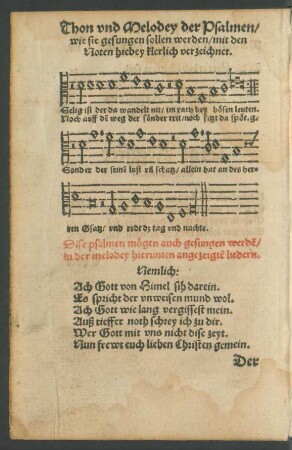 Thon vnd Melodey der Psalmen/
wie sie gesungen sollen werden/ mit den
Noten hiebey klerlich verzeichnet.
Selig ist der da wandelt nit/ im rath bey bösen leuten.
Noch auff dē weg der sünder trit/ noch sitzt da spöt. g.
Sonder der seinē lust vñ schatz/ allein hat an des her-
ren Gsatz/ vnd redt dz tag vnd nachte.
Dise psalmen mögen auch gesungen werdē/
in der melodey hierunten angezeigtē liedern.
Nemlich:
Ach Gott von Himel sih darein.
Es spricht der vnweisen mund wol.
Ach Gott wie lang vergissest mein.
Auß tieffer noth schrey ich zu dir.
Wer Gott mit vns nicht dise zeyt.
Nun frewt euch lieben Christen gemein.
Der